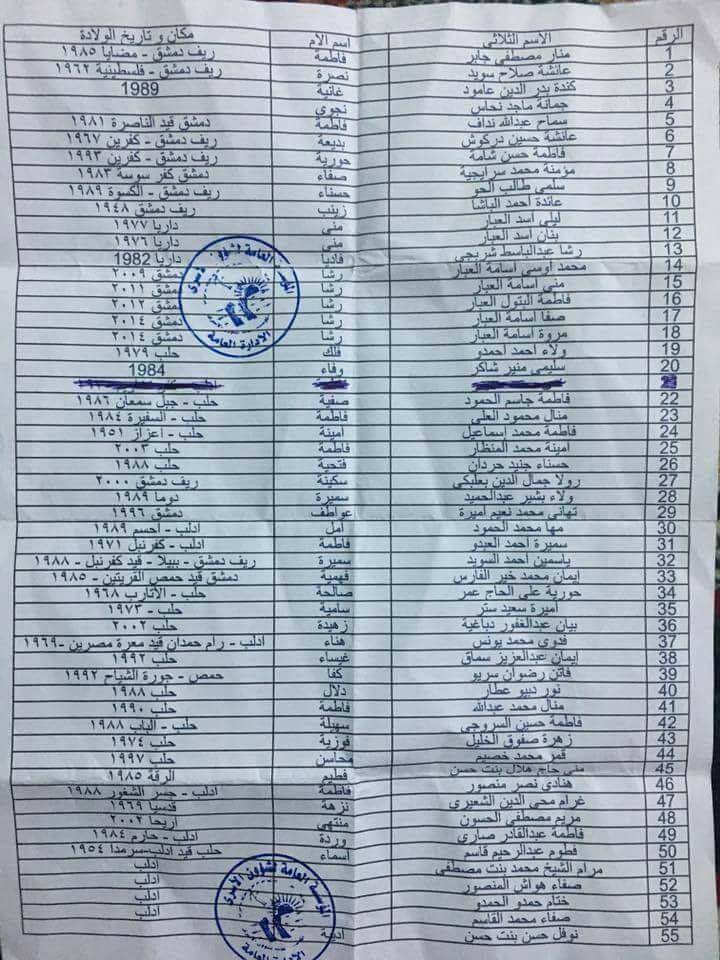 الرقم الاسم الثلاثي اسم الأم مكان و تاريخ الولادة
1 منار مصطفى جابر فاطمة ريف دمشق - مضايا ١٩٨٥
2 عائشة صلاح سويد نصرة ريف دمشق - فلسطينية ١٩٦٢
3 كندة بدر الدين عامود غانية 1989
4 جمانة ماجد نحاس نجوى
5 سماح عبدالله نداف فاطمة دمشق قيد الناصرة ١٩٨١
6 عائشة حسين دركوش بديعة ريف دمشق - كفرين ١٩٦٧
7 فاطمة حسن شامة حورية ريف دمشق - كفرين ١٩٩٣
8 مؤمنة محمد سرايجية صفاء دمشق كفر سوسة ١٩٨٣
9 سلمى طالب الحو حسناء ريف دمشق - الكسوة ١٩٨٩
10 عائدة احمد الباشا زينب ريف دمشق ١٩٤٨
11 ليلى اسد العبار منى داريا ١٩٧٧
12 بنان اسد العبار منى داريا ١٩٧٦
13 رشا عبدالباسط شربجي فاديا داريا 1982
14 محمد أوسي اسامة العبار رشا دمشق ٢٠٠٩
15 منى اسامة العبار رشا دمشق ٢٠١١
16 فاطمة البتول العبار رشا دمشق ٢٠١٢
17 صفا اسامة العبار رشا دمشق ٢٠١٤
18 مروة اسامة العبار رشا دمشق ٢٠١٤
19 ولاء احمد احمدو فلك حلب ١٩٧٩
20 سليمى منير شاكر وفاء 1984
22 فاطمة جاسم الحمود صفية حلب - جبل سمعان ١٩٨٦
23 منال محمود العلي فاطمة حلب - السفيرة ١٩٨٤
24 فاطمة محمد إسماعيل امينة حلب - اعزاز ١٩٥١
25 امينة محمد المنظار فاطمة حلب ٢٠٠٣
26 حسناء جنيد حردان فتحية حلب ١٩٨٨
27 رولا جمال الدين بعلبكي سكينة ريف دمشق ٢٠٠٠
28 ولاء بشير عبدالحميد سميرة دوما ١٩٨٩
29 تهاني محمد نعيم اميرة عواطف دمشق ١٩٩٦
30 مها محمد الحمود أمل ادلب - احسم ١٩٨٩
31 سميرة احمد العبدو فاطمة ادلب - كفرنبل ١٩٧١
32 ياسمين احمد السويد سميرة ريف دمشق - ببيلا - قيد كفرنبل - ١٩٨٨
33 إيمان محمد خير الفارس فهمية دمشق قيد حمص القريتين - ١٩٨٥
34 حورية علي الحاج عمر صالحة حلب - الأتارب ١٩٦٨
35 اميرة سعيد ستر سامية حلب - ١٩٧٣
36 بيان عبدالغفور دباغية زهيدة حلب ٢٠٠٢
37 فدوى محمد يونس هناء ادلب - رام حمدان قيد معرة مصرين -١٩٦٩
38 إيمان عبدالعزيز سماق غيساء حلب ١٩٩٢
39 فاتن رضوان سريو كفا حمص - جورة الشياح ١٩٩٢
40 نور ديبو عطار دلال حلب ١٩٨٨
41 منال محمد عبدالله فاطمة حلب ١٩٩٠
42 فاطمة حسين السروجي سهيلة حلب - الباب ١٩٨٨
43 زهرة صفوق الخليل فوزية حلب ١٩٧٤
44 قمر محمد خصيم محاسن حلب ١٩٩٧
45 منى حاج هلال بنت حسن فطيم الرقة ١٩٨٥
46 هنادي نصر منصور فاطمة ادلب - جسر الشغور ١٩٨٨
47 غرام محي الدين الشعيري نزهة قدسيا ١٩٦٩
48 مريم مصطفى الحسون منتهى اريحا ٢٠٠٢
49 فاطمة عبدالقادر صاري وردة ادلب - حارم ١٩٨٤
50 فطوم عبدالرحيم قاسم اسماء حلب قيد ادلب-سرمدا ١٩٥٤
51 مرام الشيخ محمد بنت مصطفى ادلب
52 صفاء هواش المنصور ادلب
53 ختام حمدو الحمدو ادلب
54 صفاء محمد القاسم ادلب
55 نوفل حسن بنت حسن
المؤسسة العامة لشؤون الأسرى
الإدارة العامة
المؤسسة العامة لشؤون الأسرى
الإدارة العامة